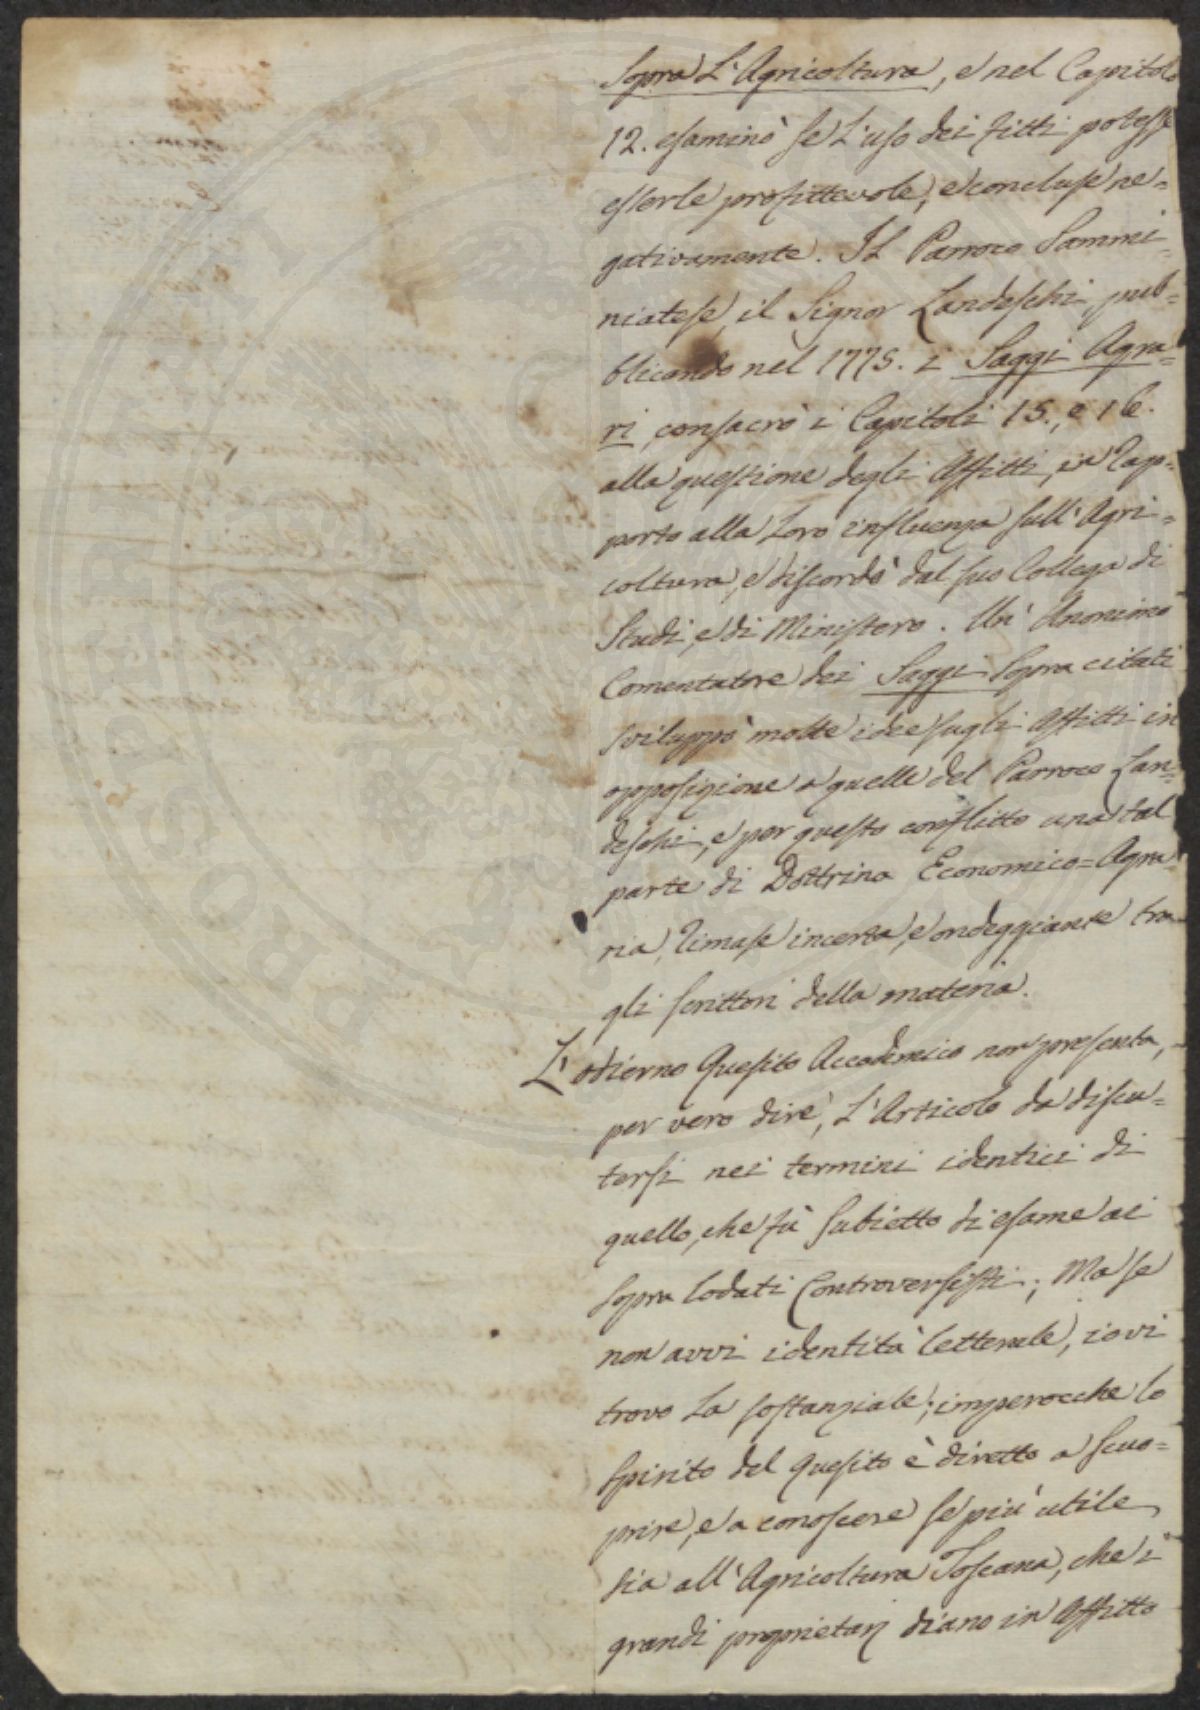 Sopra L'Agricoltura, e nel Capitolo
12. esaminò se l'uso dei fitti potesse
esserle profittevole, e concluse ne=
gativamente. Il Parroco Sammi=
niatese, il Signor Landeschi pub=
blicando nel 1775. i Saggi Agra=
ri, consacrò i Capitoli 15., e 16.
alla questione degli Affitti, in rap=
porto alla Loro influenza sull'Agri=
coltura, e discordò dal suo Collega di
Studi, e di Ministero. Un' Anonimo
Comentatore dei Saggi Sopra citati
sviluppò molte idee sugli Affitti in
opposizione a quelle del Parroco Lan=
deschi, e per questo conflitto una tal
parte di Dottrina Economico=Agra=
ria, rimase incerta, e ondeggiante tra
gli scrittori della materia.
L'odierno Quesito Accademico non presenta,
per vero dire, L'Articolo da discu=
tersi nei termini identici di
quello, che fù subietto di esame ai
sopra lodati Controversisti; Ma se
non avvi identità letterale, io vi
trovo La sostanziale; imperocche lo
spirito del quesito è diretto a scuo=
prire, e a conoscere se più utile
sia all'Agricoltura Toscana, che i
grandi proprietarj diano in Affitto